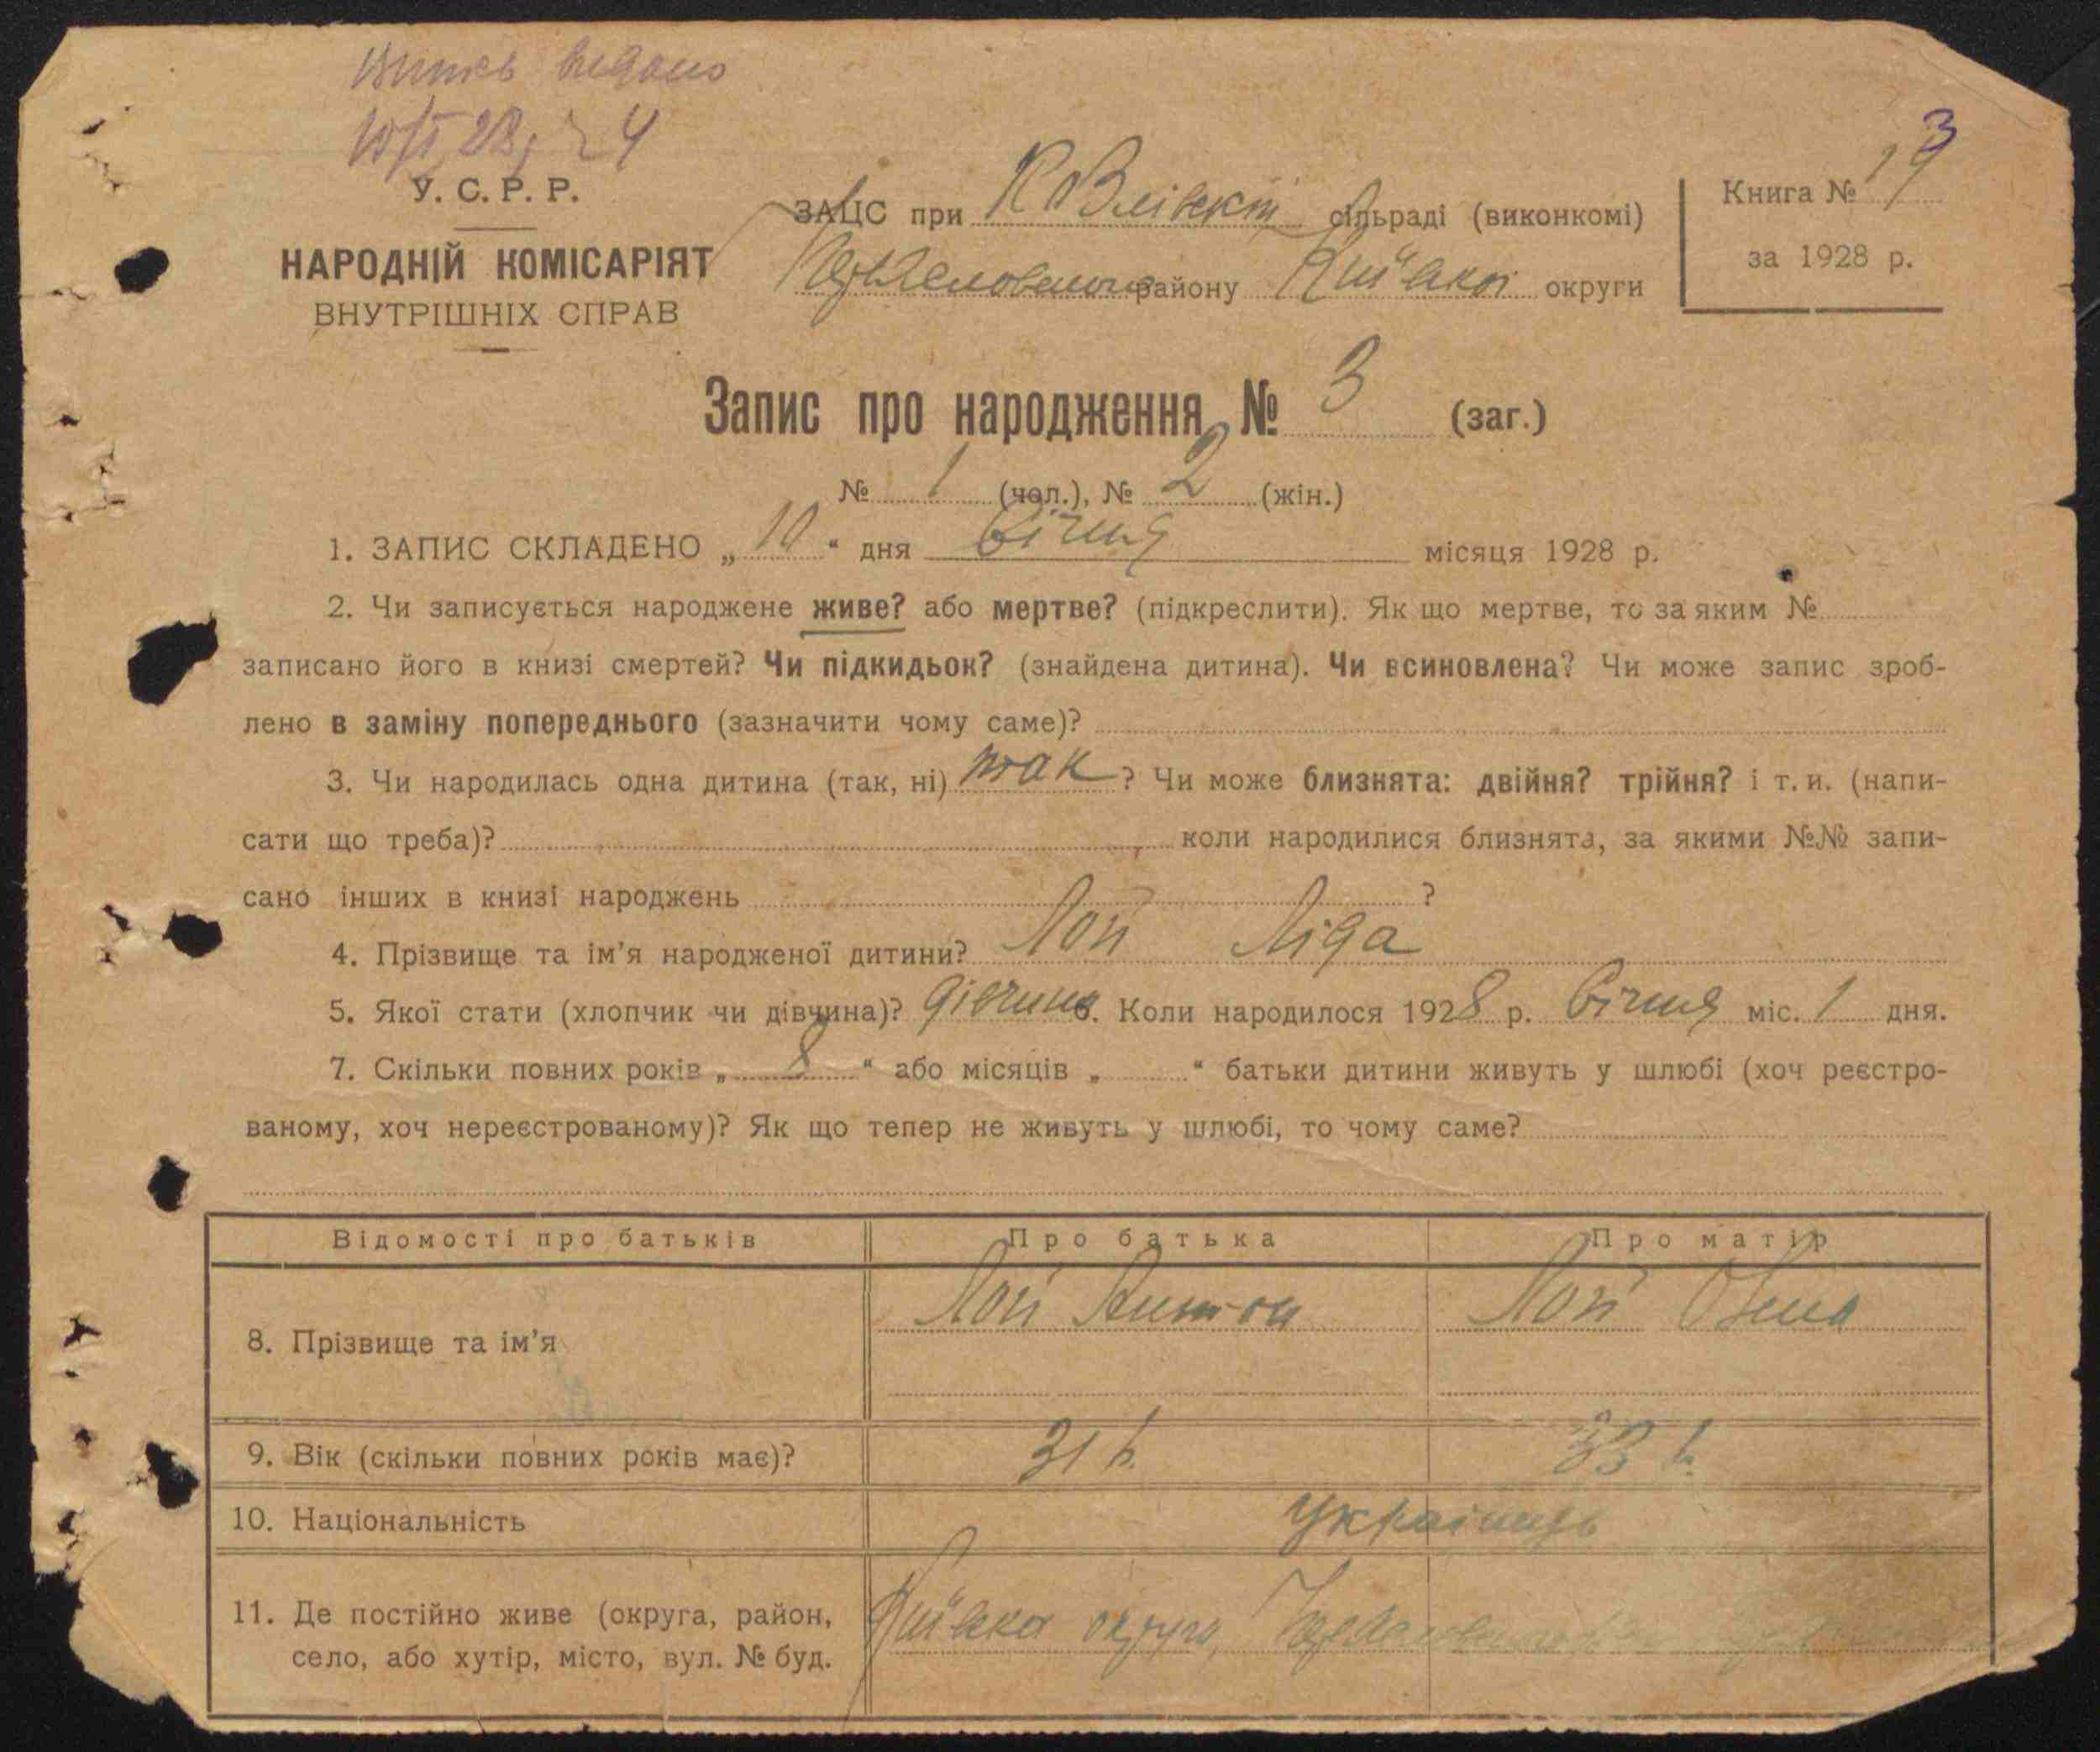 Випись видано
10/I 28 р. 4
3
У. С. Р. Р.
НАРОДНІЙ КОМІСАРІЯТ
ВНУТРІШНІХ СПРАВ
ЗАЦС при сільраді (виконкомі)
району Київської округи
Книга №
за 1928 р.
Запис про народження № 3 (заг.)
№ 1 (чол.), № 2 (жін.)
1. ЗАПИС СКЛАДЕНО „ 10 “ дня січня місяця 1928 р.
2. Чи записується народжене живе? або мертве? (підкреслити). Як що мертве, то за яким №
записано його в книзі смертей? Чи підкидьок? (знайдена дитина). Чи всиновлена? Чи може запис зроб-
лено в заміну попереднього (зазначити чому саме)?
3. Чи народилась одна дитина (так, ні) так ? Чи може близнята: двійня? трійня? і т. и. (напи-
сати що треба)? коли народилися близнята, за якими №№ запи-
сано інших в книзі народжень ?
4. Прізвище та ім'я народженої дитини? Лой Ліда
5. Якої стати (хлопчик чи дівчина)? дівчина. Коли народилося 1928 р. січня міс. 1 дня.
7. Скільки повних років „ 8 “ або місяців „ “ батьки дитини живуть у шлюбі (хоч реєстро-
ваному, хоч нереєстрованому)? Як що тепер не живуть у шлюбі, то чому саме?
Відомості про батьків Про батька Про матір
8. Прізвище та ім'я Лой Антон Лой
9. Вік (скільки повних років має)? 31 р. 33 р.
10. Національність українць
11. Де постійно живе (округа, район, Київська округа,
село, або хутір, місто, вул. № буд.